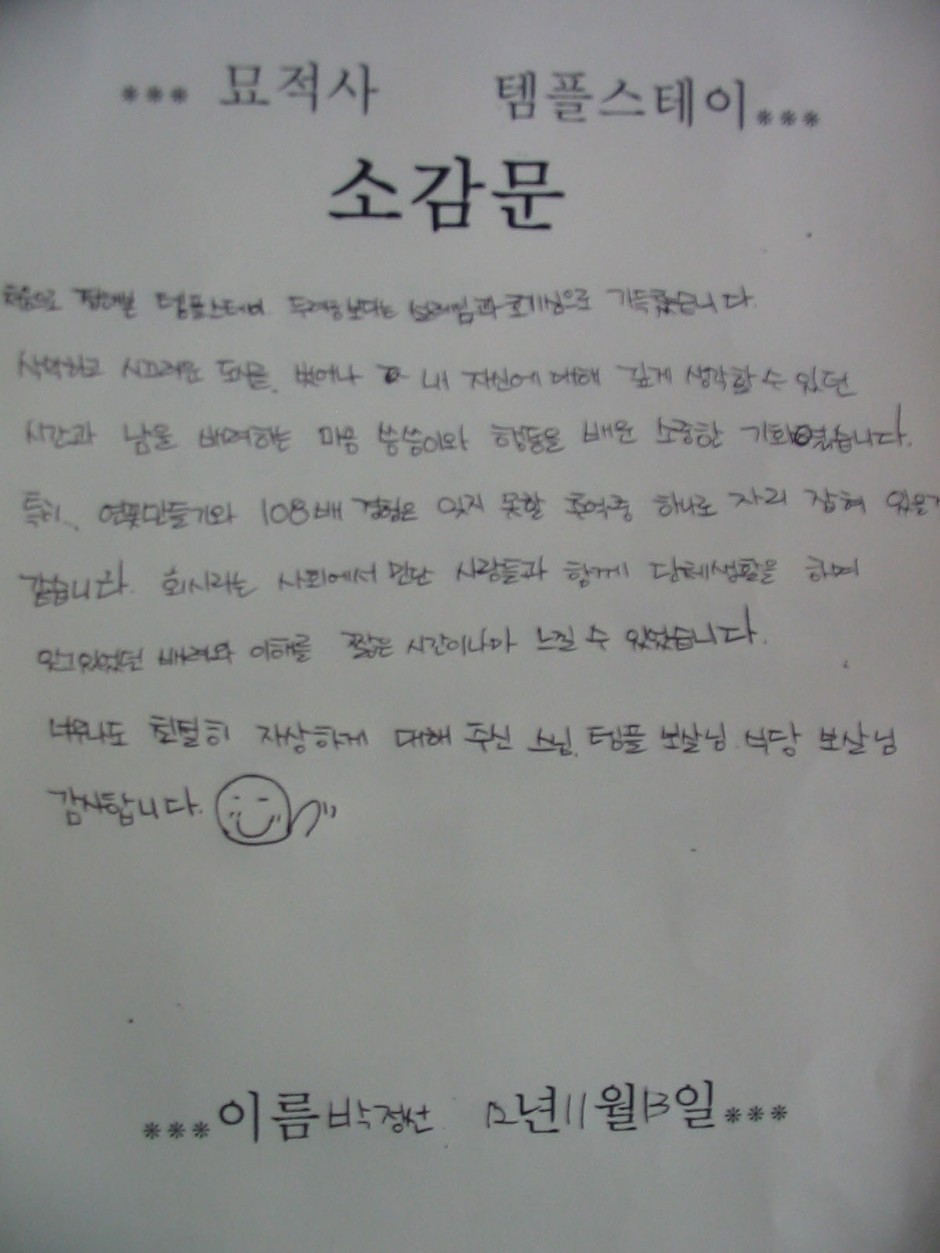 *** 묘적사 템플스테이 ***
소감문
처음으로 접해본 템플스테이. 두려움보다는 설레임과 호기심으로 가득찼습니다.
삭막하고 시끄러운 도시를 벗어나 내 자신에 대해 깊게 생각할 수 있던
시간과 남을 배려하는 마음 씀씀이와 행동을 배운 소중한 기회였습니다.
특히, 연꽃만들기와 108배 경험은 잊지 못할 추억중 하나로 자리 잡혀 있을거
같습니다. 회사라는 사회에서 만난 사람들과 함께 단체생활을 하며
잊고있었던 배려와 이해를 짧은 시간이나마 느낄 수 있었습니다.
너무나도 친절히 자상하게 대해 주신 스님, 템플 보살님 식당 보살님
감사합니다.
*** 이름 박정선 12년 11월 13일 ***